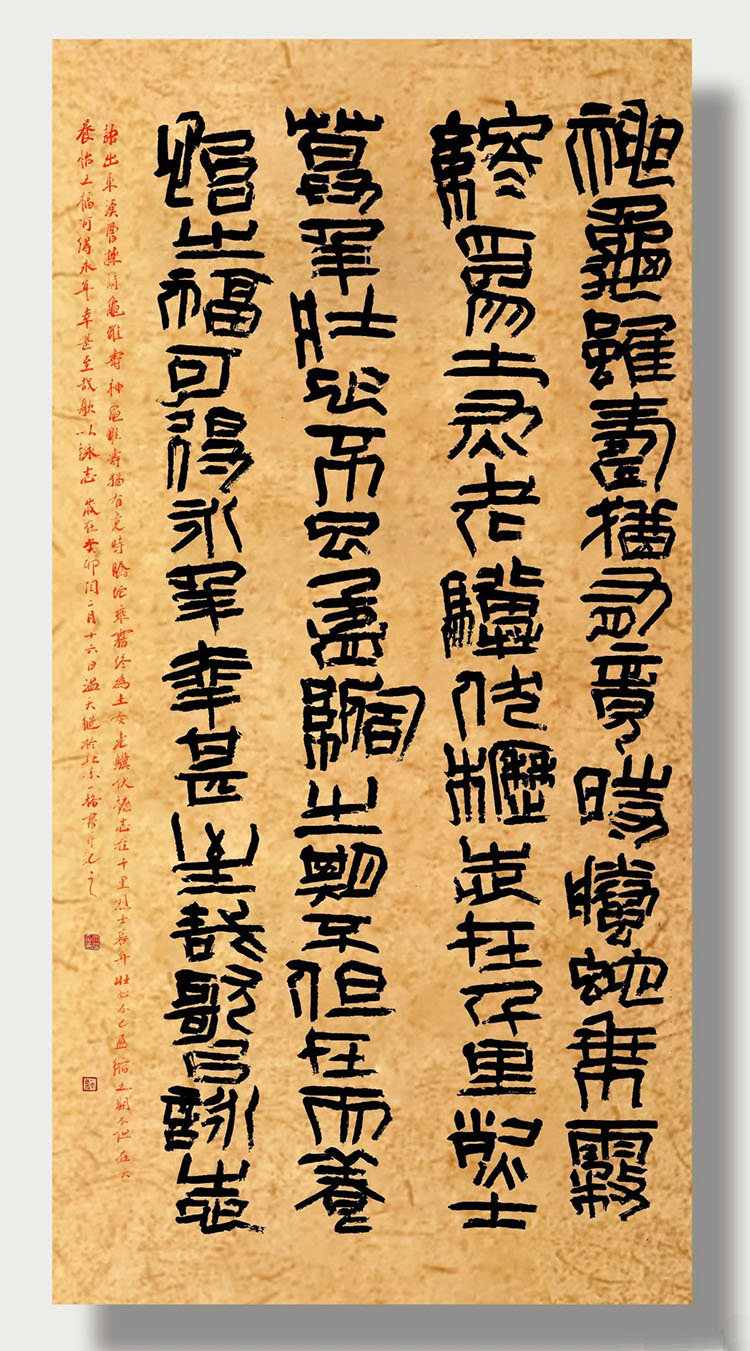 神龜雖壽猶有竟時騰蛇乘霧
終為土灰老驥伏櫪志在千里烈士
暮年壯心不已盈縮之期不但在天養
怡之福可得永年幸甚至哉歌以詠志
語出東漢曹操詩龜雖壽神龜雖壽猶有竟時騰蛇乘霧終為土灰老驥伏櫪志在千里烈士暮年壯心不已盈縮之期不但在天
養怡之福可得永年幸甚至哉歌以詠志歲在癸卯閏二月十六日溫天繼於北京書并記之